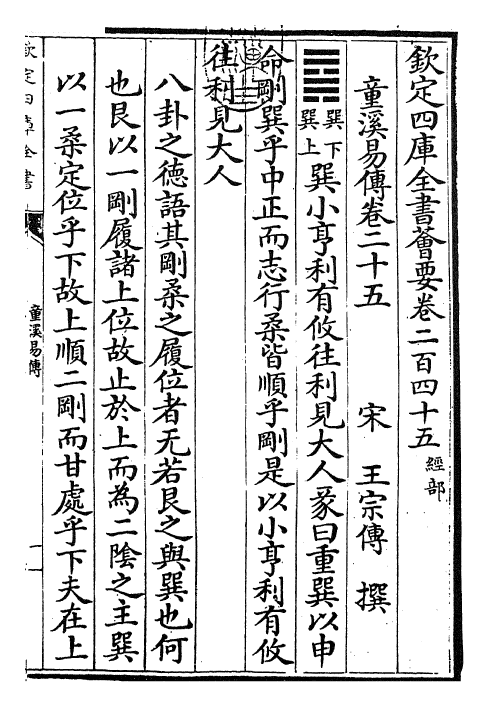 欽定四庫全書薈要卷二百四十五經部
童溪易傳卷二十五　宋　王宗傳　撰
巽下
巽上
巽小亨利有攸往利見大人彖曰重巽以申
命剛巽乎中正而志行柔皆順乎剛是以小亨利有攸
往利見大人
八卦之徳語其剛柔之履位者无若艮之與巽也何
也艮以一剛履諸上位故止於上而為二陰之主巽
以一柔定位乎下故上順二剛而甘處乎下夫在上
欽定四庫全書
童溪易傳
一